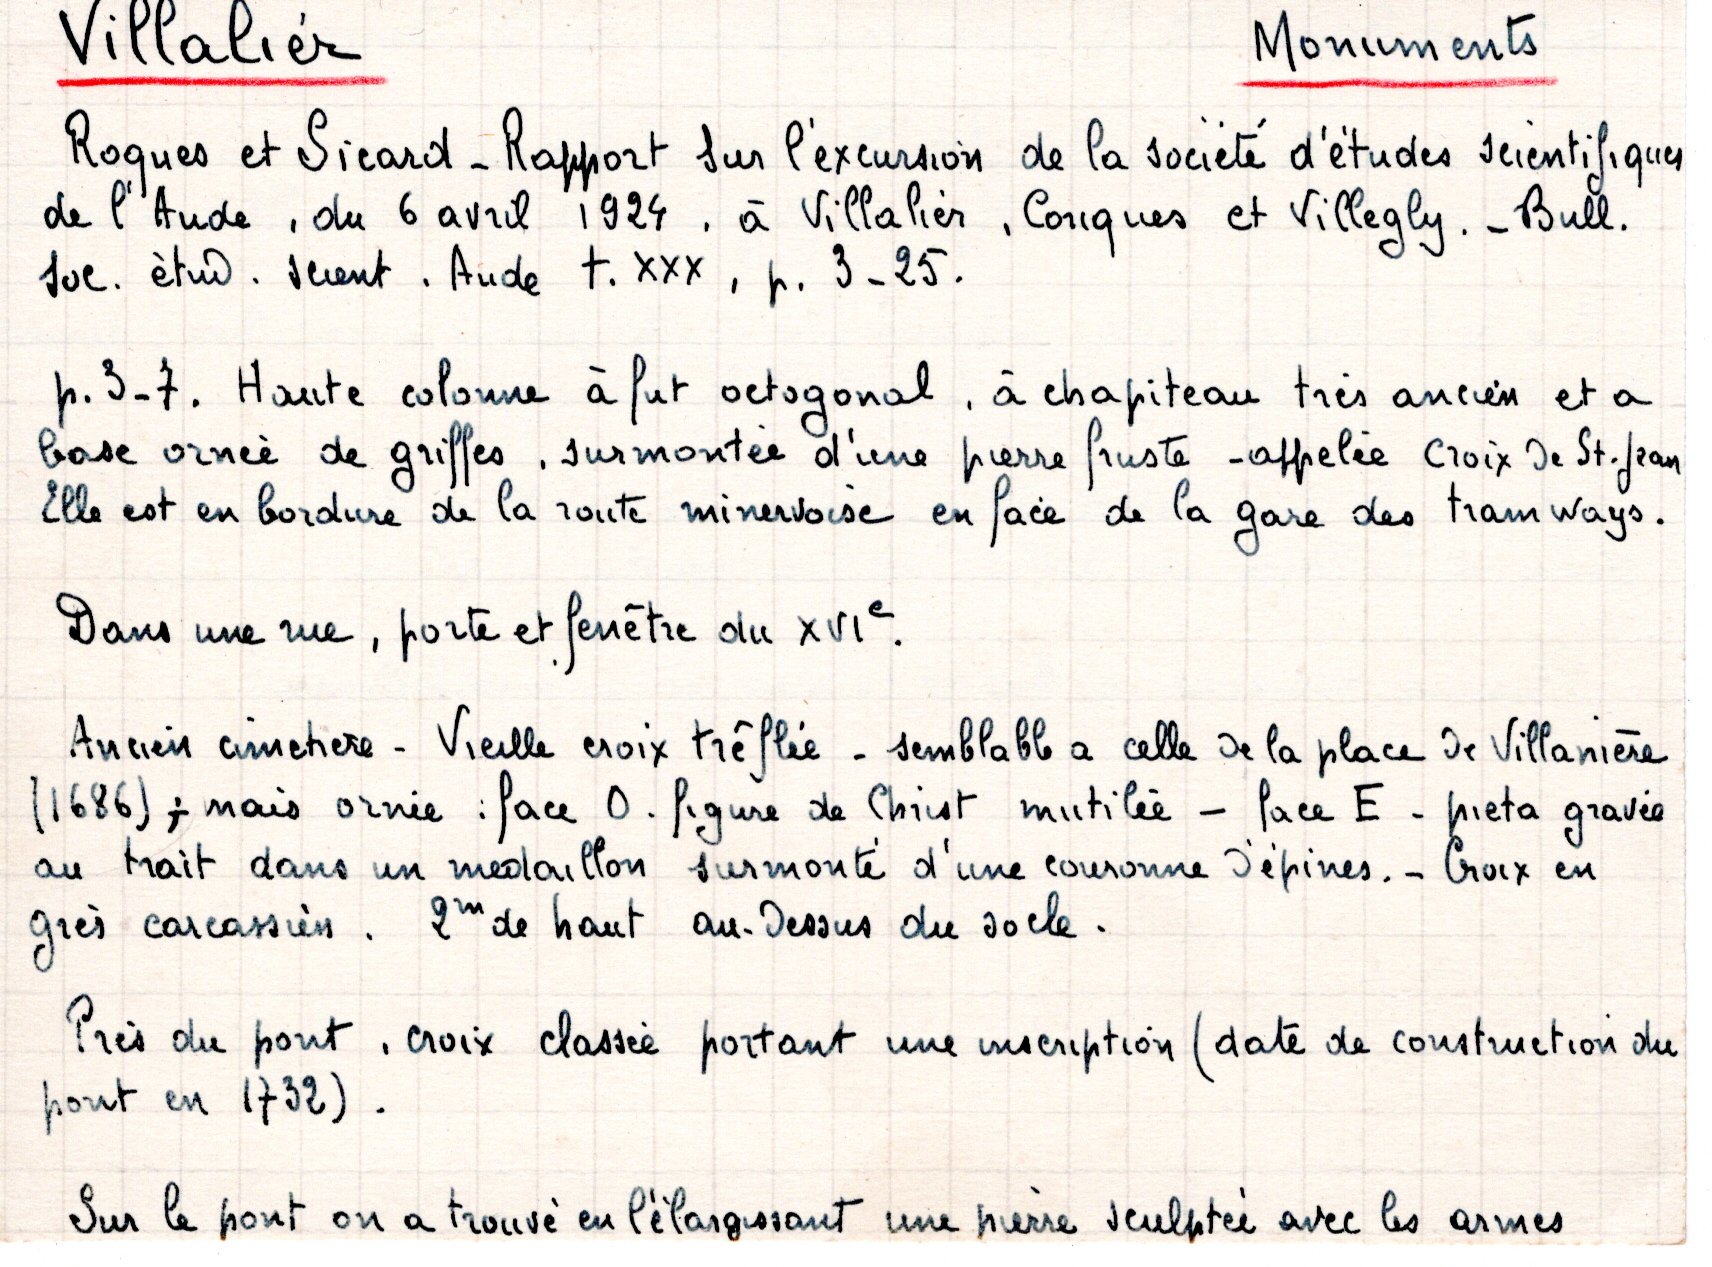 Villalier
Monuments
Roques et Sicard - Rapport sur l'excursion de la société d'études scientifiques
de l'Aude, du 6 avril 1924, à Villalier, Conques et Villegly. - Bull.
soc. étud. scient. Aude t. XXX, p. 3-25.
p. 3-7. Haute colonne à fut octogonal, à chapiteau très ancien et a
base ornée de griffes, surmontée d'une pierre fruste - appelée Croix de St. Jean
Elle est en bordure de la route minervoise en face de la gare des tramways.
Dans une rue, porte et fenêtre du XVIe.
Ancien cimetiere - Vieille croix tréflée - semblable a celle de la place de Villanière
(1686) ; mais ornée : face O. figure de Christ mutilée - face E - pieta gravée
au trait dans un medaillon surmonté d'une couronne d'épines. - Croix en
grès carcassien. 2m de haut au-dessus du socle.
Près du pont, croix classée portant une inscription (date de construction du
pont en 1732).
Sur le pont on a trouvé en l'élargissant une pierre sculptée avec les armes